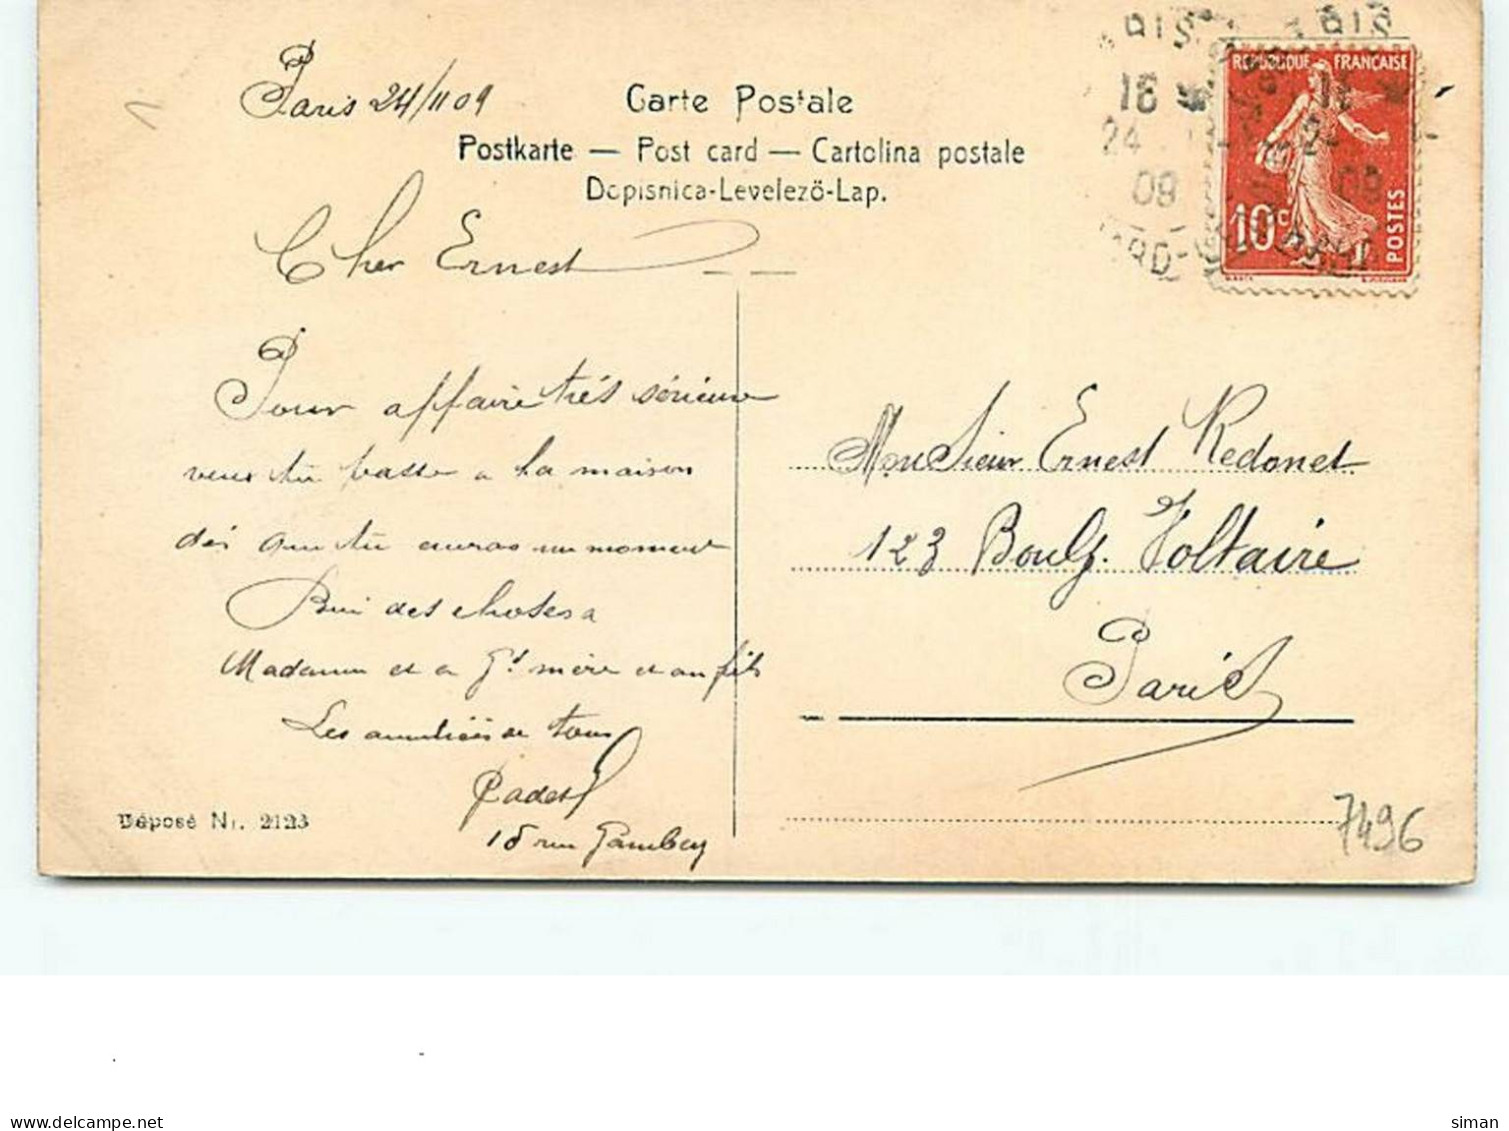 Paris 24/11 09
Carte Postale
Postkarte — Post card — Cartolina postale
Dopisnica-Levelező-Lap.
REPUBLIQUE FRANÇAISE
10c
POSTES
16
24
09
Cher Ernest
Pour affaire trés sérieuse
veux tu passe a la maison
dés que tu auras un moment
Bien des choses a
Madame et a Gd mère et au fils
Les amitiés de tous
15 rue Gambey
Monsieur Ernest Redonet
123 Boulg. Voltaire
Paris
Déposé Nr. 2123
7496
delcampe.net
siman